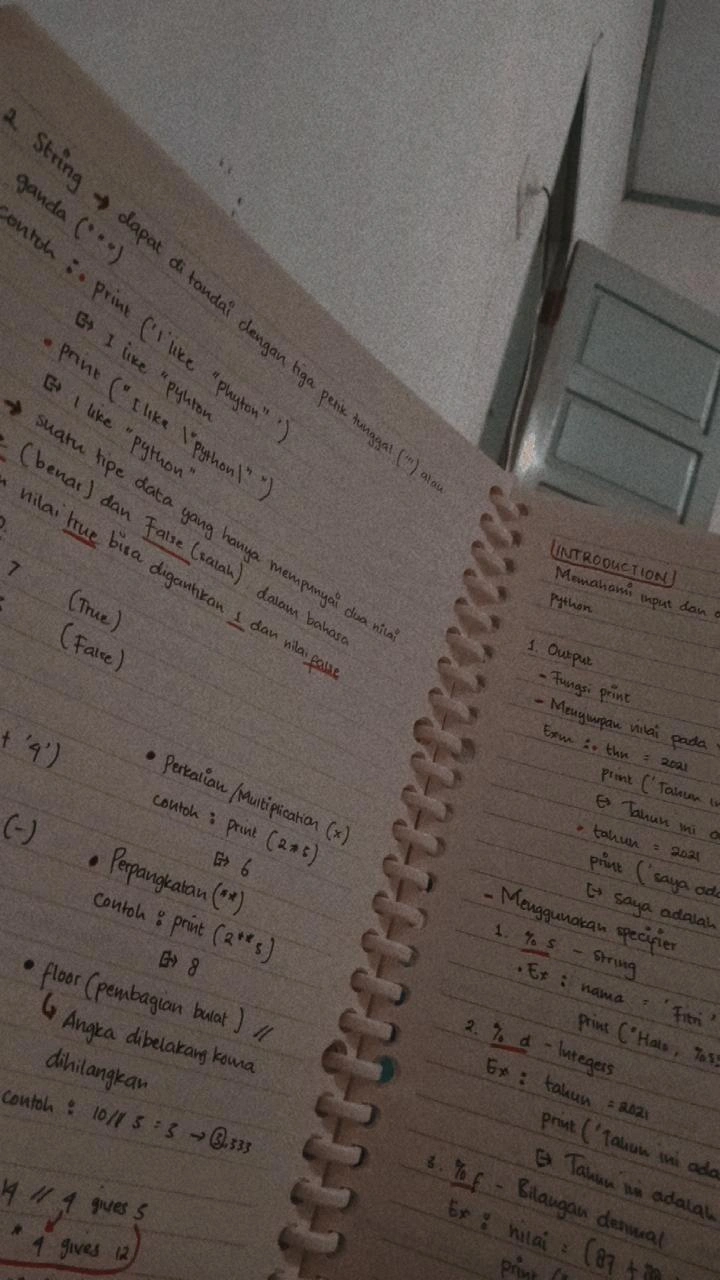 2. String → dapat di tandai dengan tiga petik tunggal (''') atau
ganda ("...")
contoh : • print ('I like "phyton" ')
↳ I like "pyhton
• print ("I like \"python\" ")
↳ I like "python"
→ suatu tipe data yang hanya mempunyai dua nilai
(benar) dan False (salah). dalam bahasa
nilai true bisa digantikan 1 dan nilai false
7 (True)
(False)
+ '4')
• Perkalian /Multiplication (x)
contoh : print (2*3)
↳ 6
(-)
• Perpangkatan (**)
contoh : print (2**3)
↳ 8
• floor (pembagian bulat) //
↳ Angka dibelakang koma
dihilangkan
contoh : 10// 3 = 3 → 3,333
// 4 gives
* 4 gives 12
INTRODUCTION
Memahami input dan
Python
1. Output
- Fungsi print
- Menyimpan nilai pada
Exm : • thn = 2021
print ('Tahun
↳ Tahun ini
• tahun = 2021
print ('saya
↳ saya adalah
- Menggunakan specifier
1. % s - string
• Ex : nama = 'Fitri'
print ("Halo, %s
2. % d - Integers
Ex : tahun = 2021
print ('Tahun ini
↳ Tahun ini adalah
3. % f - Bilangan desimal
Ex : nilai = (87 +
print